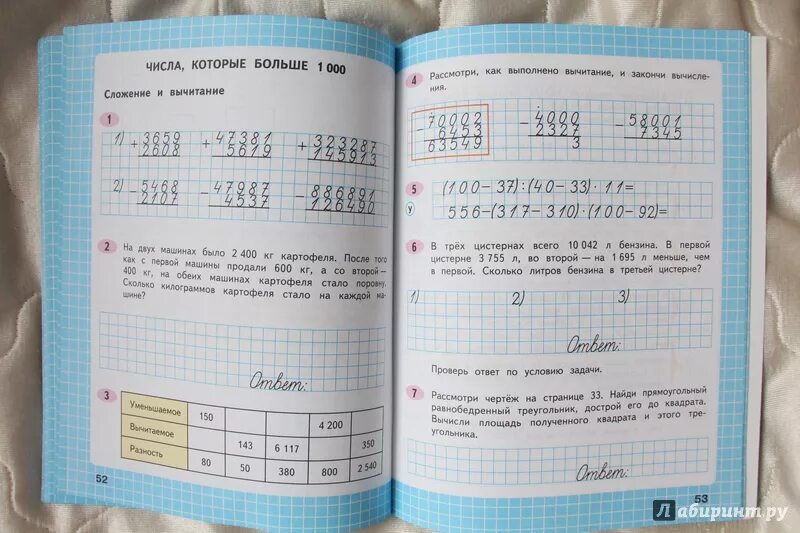 ЧИСЛА, КОТОРЫЕ БОЛЬШЕ 1 000
Сложение и вычитание
1
1) + 3659 + 47381 + 323287
2608 5619 145913
2) − 5468 − 47987 − 886891
2107 4537 126490
2 На двух машинах было 2 400 кг картофеля. После того
как с первой машины продали 600 кг, а со второй —
400 кг, на обеих машинах картофеля стало поровну.
Сколько килограммов картофеля стало на каждой ма-
шине?
Ответ:
3
Уменьшаемое 150 4 200
Вычитаемое 143 6 117 350
Разность 80 50 380 800 2 540
52
4 Рассмотри, как выполнено вычитание, и закончи вычисле-
ния.
− 70002 − 4000 − 58001
6453 2327 7345
63549 3
5 (100−37):(40−33)·11=
У 556−(317−310)·(100−92)=
6 В трёх цистернах всего 10 042 л бензина. В первой
цистерне 3 755 л, во второй — на 1 695 л меньше, чем
в первой. Сколько литров бензина в третьей цистерне?
1) 2) 3)
Ответ:
Проверь ответ по условию задачи.
7 Рассмотри чертёж на странице 33. Найди прямоугольный
равнобедренный треугольник, дострой его до квадрата.
Вычисли площадь полученного квадрата и этого тре-
угольника.
Ответ:
53
Лабиринт.ру